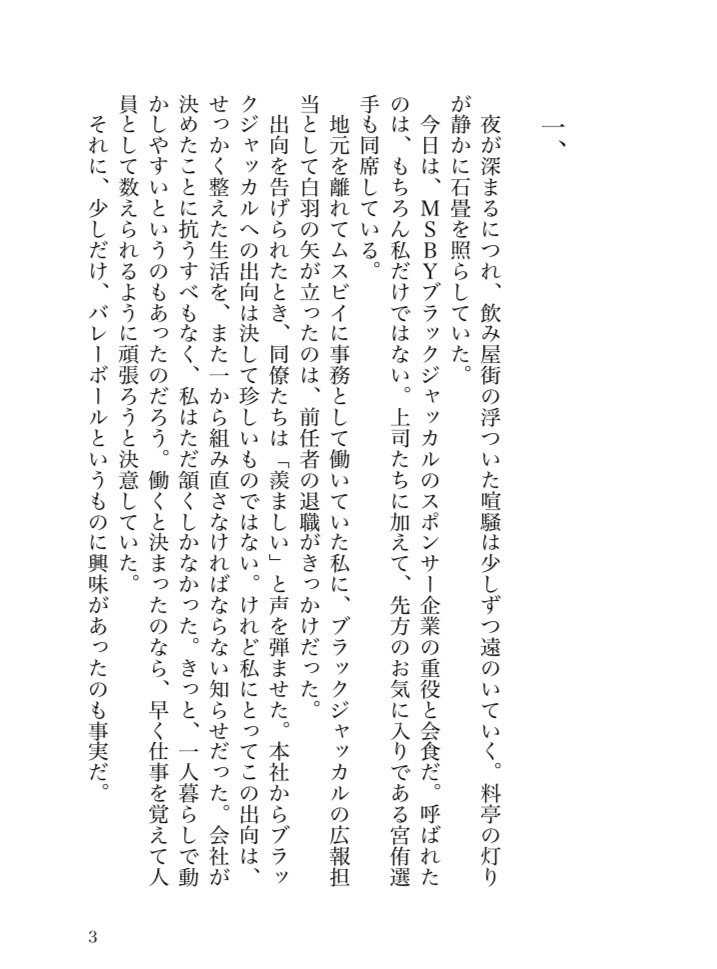 一、
夜が深まるにつれ、飲み屋街の浮ついた喧騒は少しずつ遠のいていく。料亭の灯り
が静かに石畳を照らしていた。
今日は、MSBYブラックジャッカルのスポンサー企業の重役と会食だ。呼ばれた
のは、もちろん私だけではない。上司たちに加えて、先方のお気に入りである宮侑選
手も同席している。
地元を離れてムスビイに事務として働いていた私に、ブラックジャッカルの広報担
当として白羽の矢が立ったのは、前任者の退職がきっかけだった。
出向を告げられたとき、同僚たちは「羨ましい」と声を弾ませた。本社からブラッ
クジャッカルへの出向は決して珍しいものではない。けれど私にとってこの出向は、
せっかく整えた生活を、また一から組み直さなければならない知らせだった。会社が
決めたことに抗うすべもなく、私はただ頷くしかなかった。きっと、一人暮らしで動
かしやすいというのもあったのだろう。働くと決まったのなら、早く仕事を覚えて人
員として数えられるように頑張ろうと決意していた。
それに、少しだけ、バレーボールというものに興味があったのも事実だ。
3